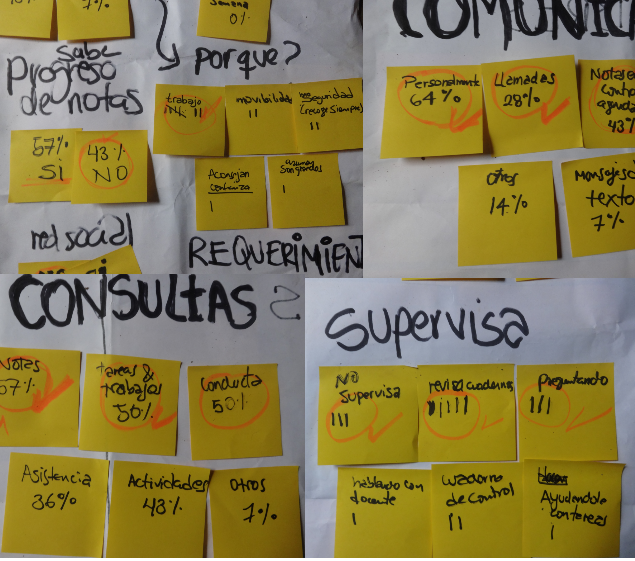 7%
semana
0%
sabe
Progreso
de notas
porque?
trabajo
movibilidad
seguridad
(recoge siempre)
II
II
57%
SI
43%
NO
Aconsejan
I
I
red social
REQUERIMIEN
COMUNIC
Personalmente
64%
Llamadas
28%
Notas
agenda
43%
otros
14%
Mensajes
texto
7%
CONSULTAS
Notas
57%
tareas &
trabajos
50%
Conducta
50%
Asistencia
36%
Actividades
43%
Otros
7%
Supervisa
NO
Supervisa
III
revisa cuadernos
IIIII
Preguntando
III
hablando con
docente
I
cuaderno
de control
II
Ayudendole
con tareas
I